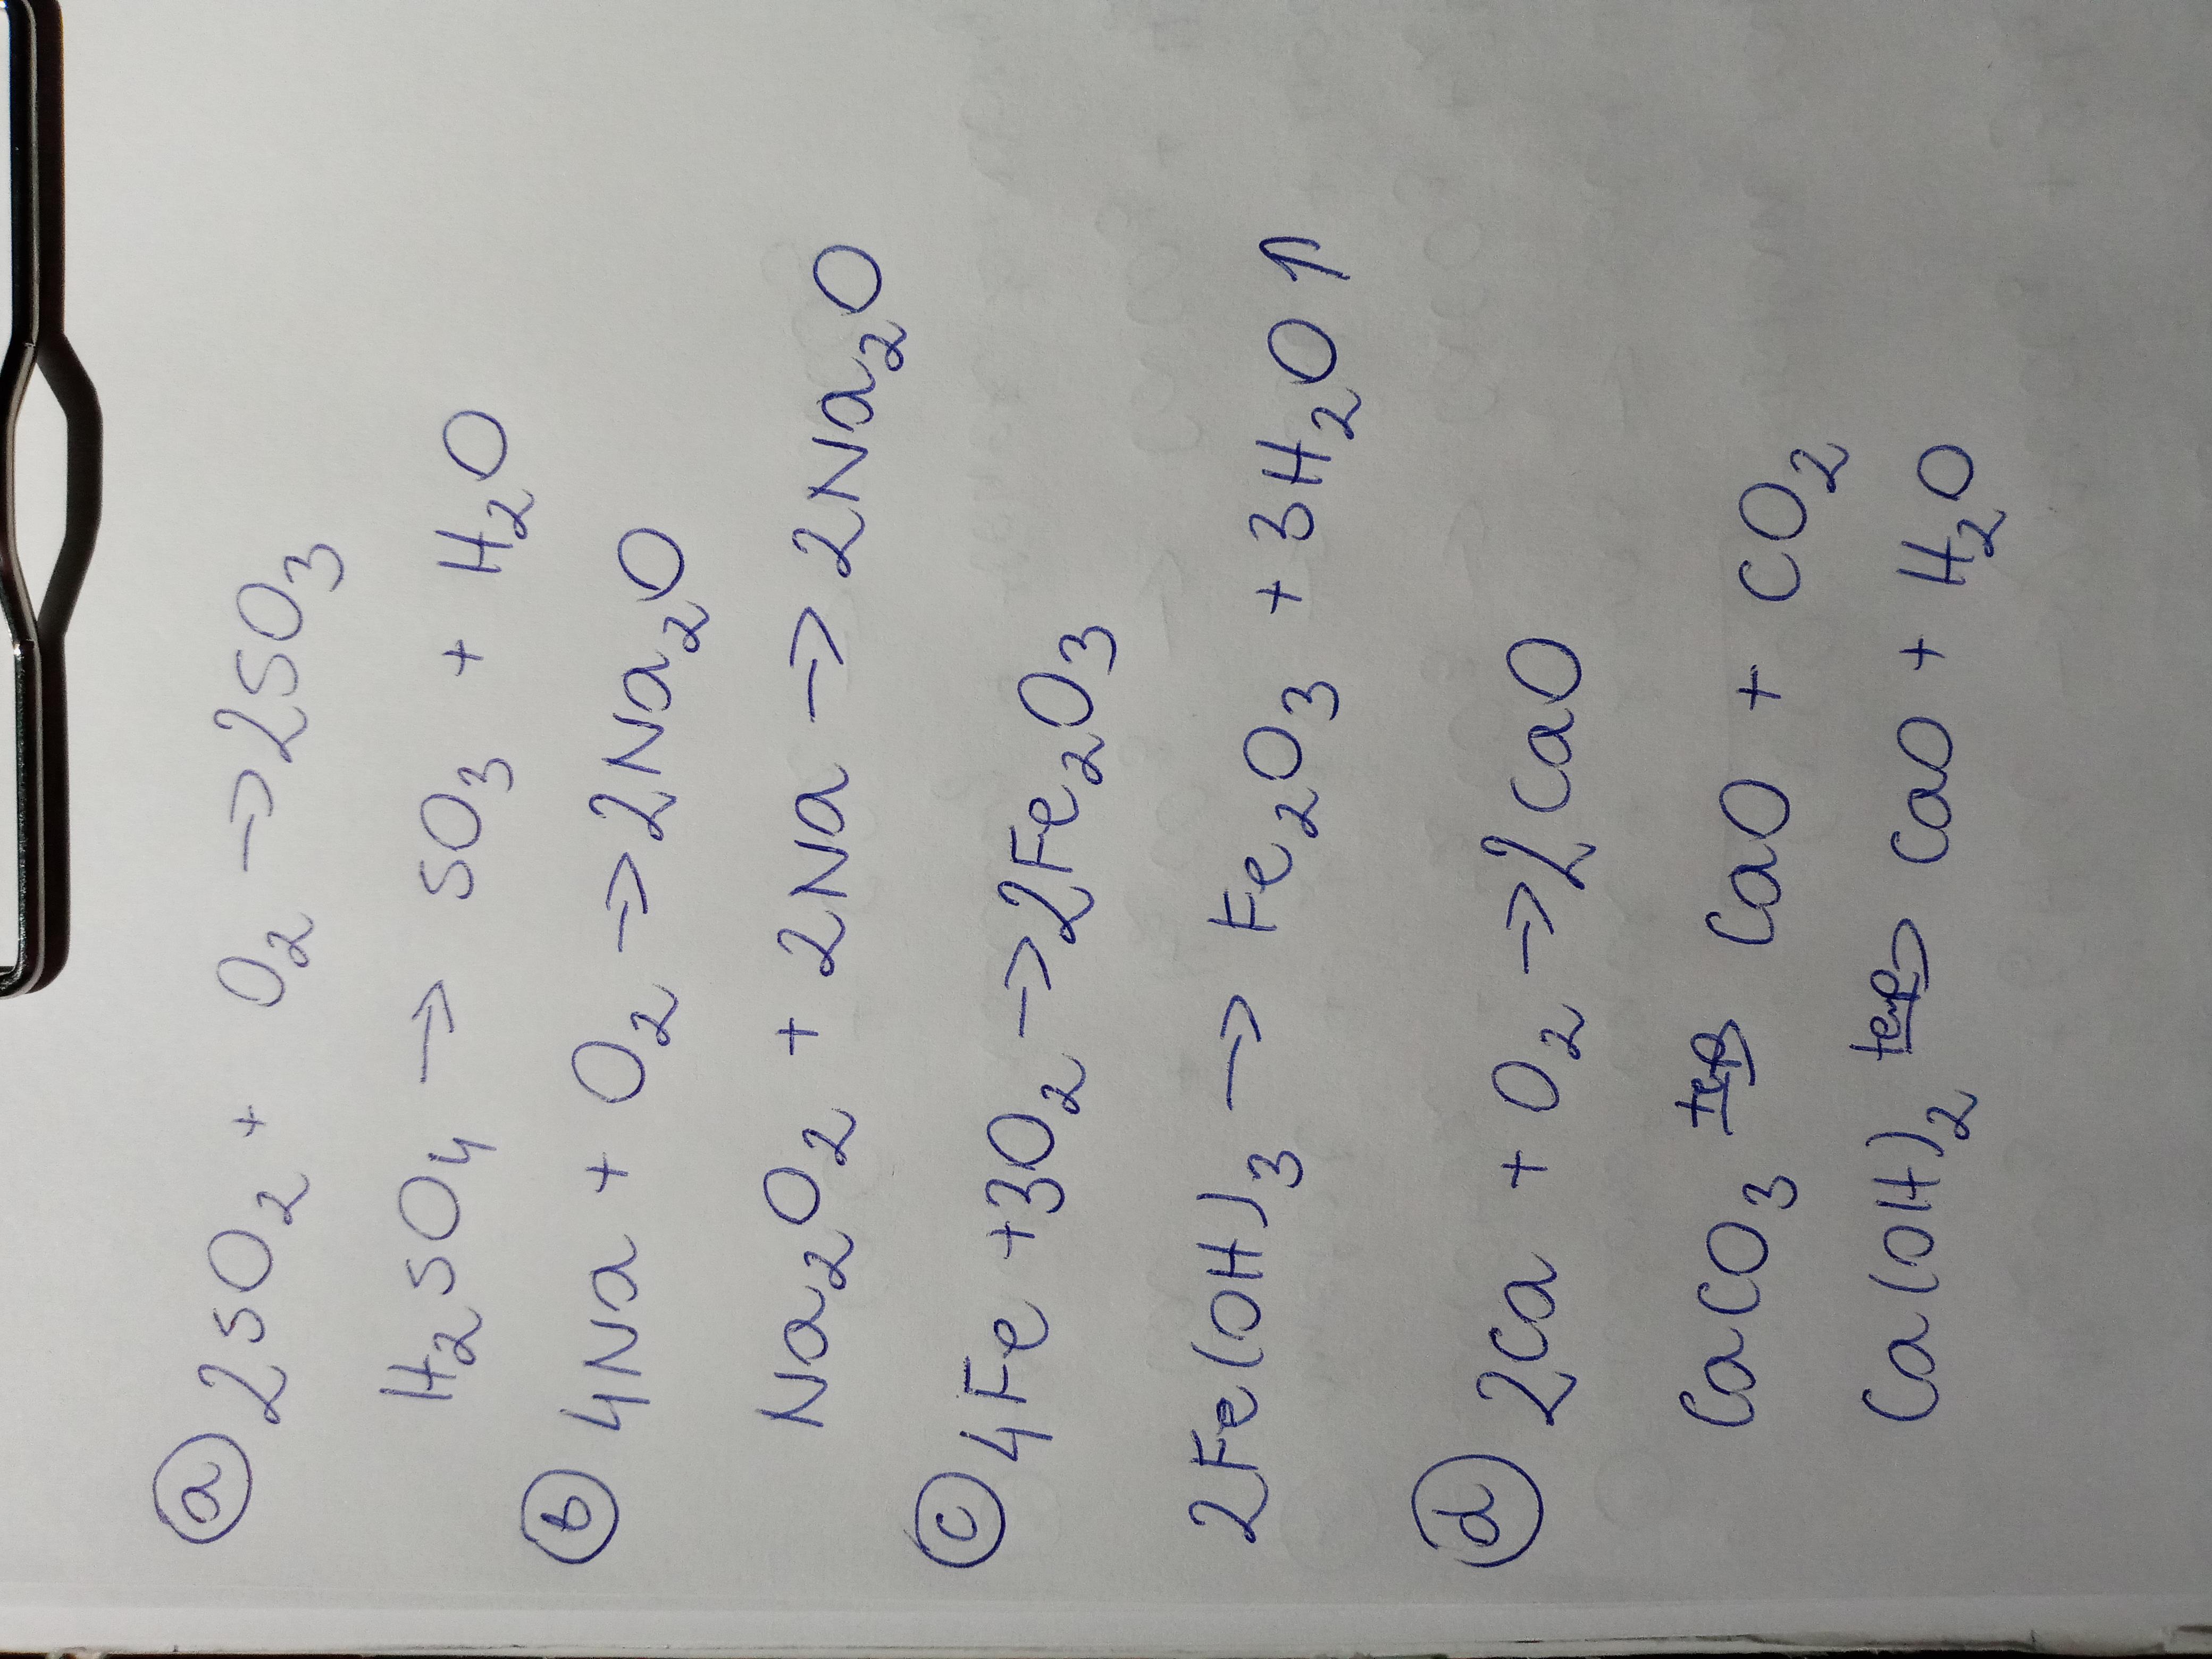 a 2SO₂ + O₂ → 2SO₃
H₂SO₄ → SO₃ + H₂O
b 4Na + O₂ → 2Na₂O
Na₂O₂ + 2Na → 2Na₂O
c 4Fe + 3O₂ → 2Fe₂O₃
2Fe(OH)₃ → Fe₂O₃ + 3H₂O ↑
d 2Ca + O₂ → 2CaO
CaCO₃ temp→ CaO + CO₂
Ca(OH)₂ temp→ CaO + H₂O